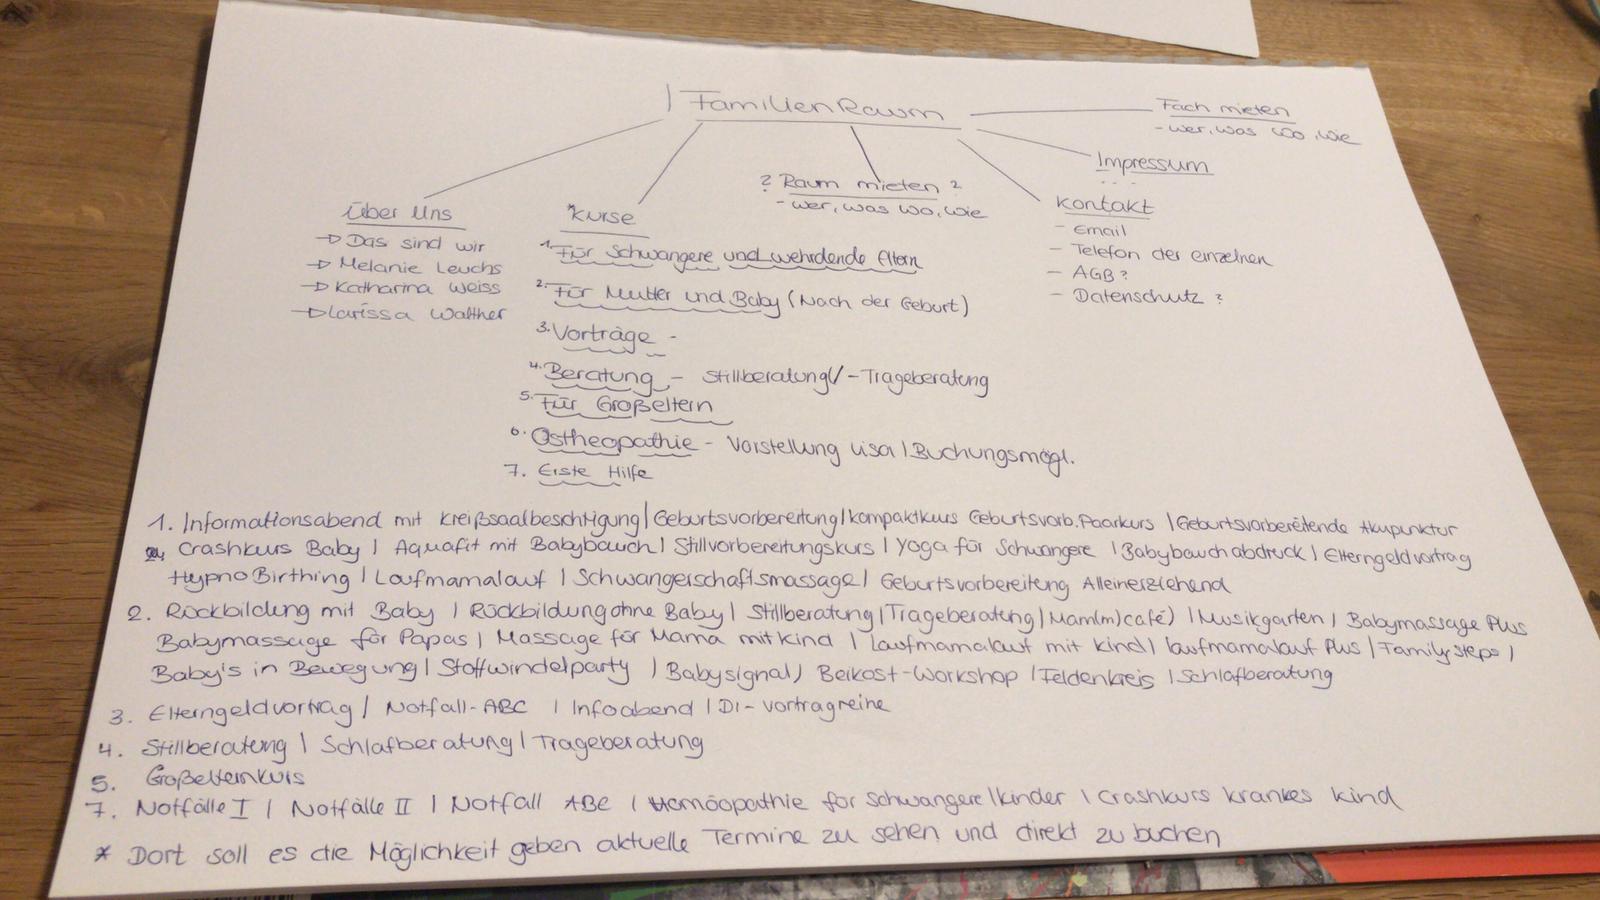 FamilienRaum
Fach mieten
- wer, was wo, wie
Impressum
...
? Raum mieten ?
- wer, was wo, wie
Kontakt
- Email
- Telefon der einzelnen
- AGB?
- Datenschutz ?
Über Uns
→ Das sind wir
→ Melanie Leuchs
→ Katharina Weiss
→ Larissa Walther
*Kurse
1. Für Schwangere und wehrdende Eltern
2. Für Mutter und Baby (Nach der Geburt)
3. Vorträge -
4. Beratung - Stillberatung/ - Trageberatung
5. Für Großeltern
6. Ostheopathie - Vorstellung Lisa | Buchungsmögl.
7. Erste Hilfe
1. Informationsabend mit Kreißsaalbeschtigung | Geburtsvorbereitung | Kompaktkurs Geburtsvorb. Paarkurs | Geburtsvorbereitende Akupunktur
Crashkurs Baby | Aquafit mit Babybauch | Stillvorbereitungskurs | Yoga für Schwangere | Babybauchabdruck | Elterngeldvortrag
HypnoBirthing | Laufmamalauf | Schwangerschaftsmassage | Geburtsvorbereitung Alleinerziehend
2. Rückbildung mit Baby | Rückbildung ohne Baby | Stillberatung | Trageberatung | Mam(m)café) | Musikgarten | Babymassage Plus
Babymassage für Papas | Massage für Mama mit Kind | Laufmamalauf mit Kind | laufmamalauf Plus | Family Steps |
Baby's in Bewegung | Stoffwindelparty | Babysignal) Beikost-Workshop | Feldenkreis | Schlafberatung
3. Elterngeldvortrag | Notfall-ABC | Infoabend | Di-Vortragreihe
4. Stillberatung | Schlafberatung | Trageberatung
5. Großelternkurs
7. Notfälle I | Notfälle II | Notfall ABC | Homöopathie für Schwangere | Kinder | Crashkurs krankes Kind
* Dort soll es die Möglichkeit geben aktuelle Termine zu sehen und direkt zu buchen